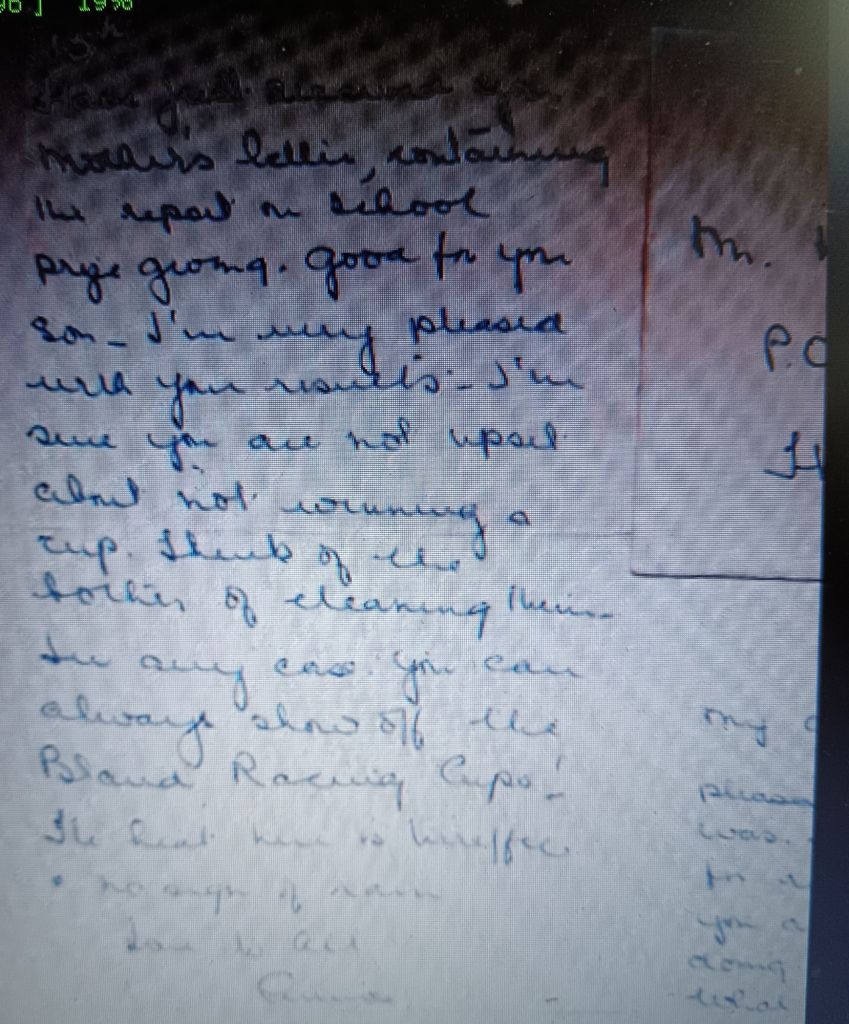 1996
15th
Have just received yr.
mothers letter, containing
the report on school
prize giving. Good for you
son - I'm very pleased
with your results - I'm
sure you are not upset
about not winning a
cup. Think of the
bother of cleaning them -
In any case you can
always show off the
Bland Racing Cups!
The heat here is
no sign of rain
Love to all
Mr.
P.O
my
pleased
was.
for
you a
doing
what